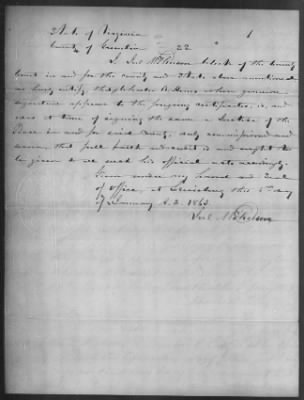 State of Virginia 1
County of 22
I Joel McPherson clerk of the County
Court in and for the County and State above mentioned
do hereby certify, that B. whose genuine
signature appears to the foregoing certificate, is, and
was at time of signing the same a Justice of the
Peace in and for said County, duly commissioned and
sworn, that full faith and credit is and ought to
be given to all such his official acts accordingly.
Given under my hand and Seal
of office, at Lewisburg this day
of January A.D. 1863
Joel McPherson